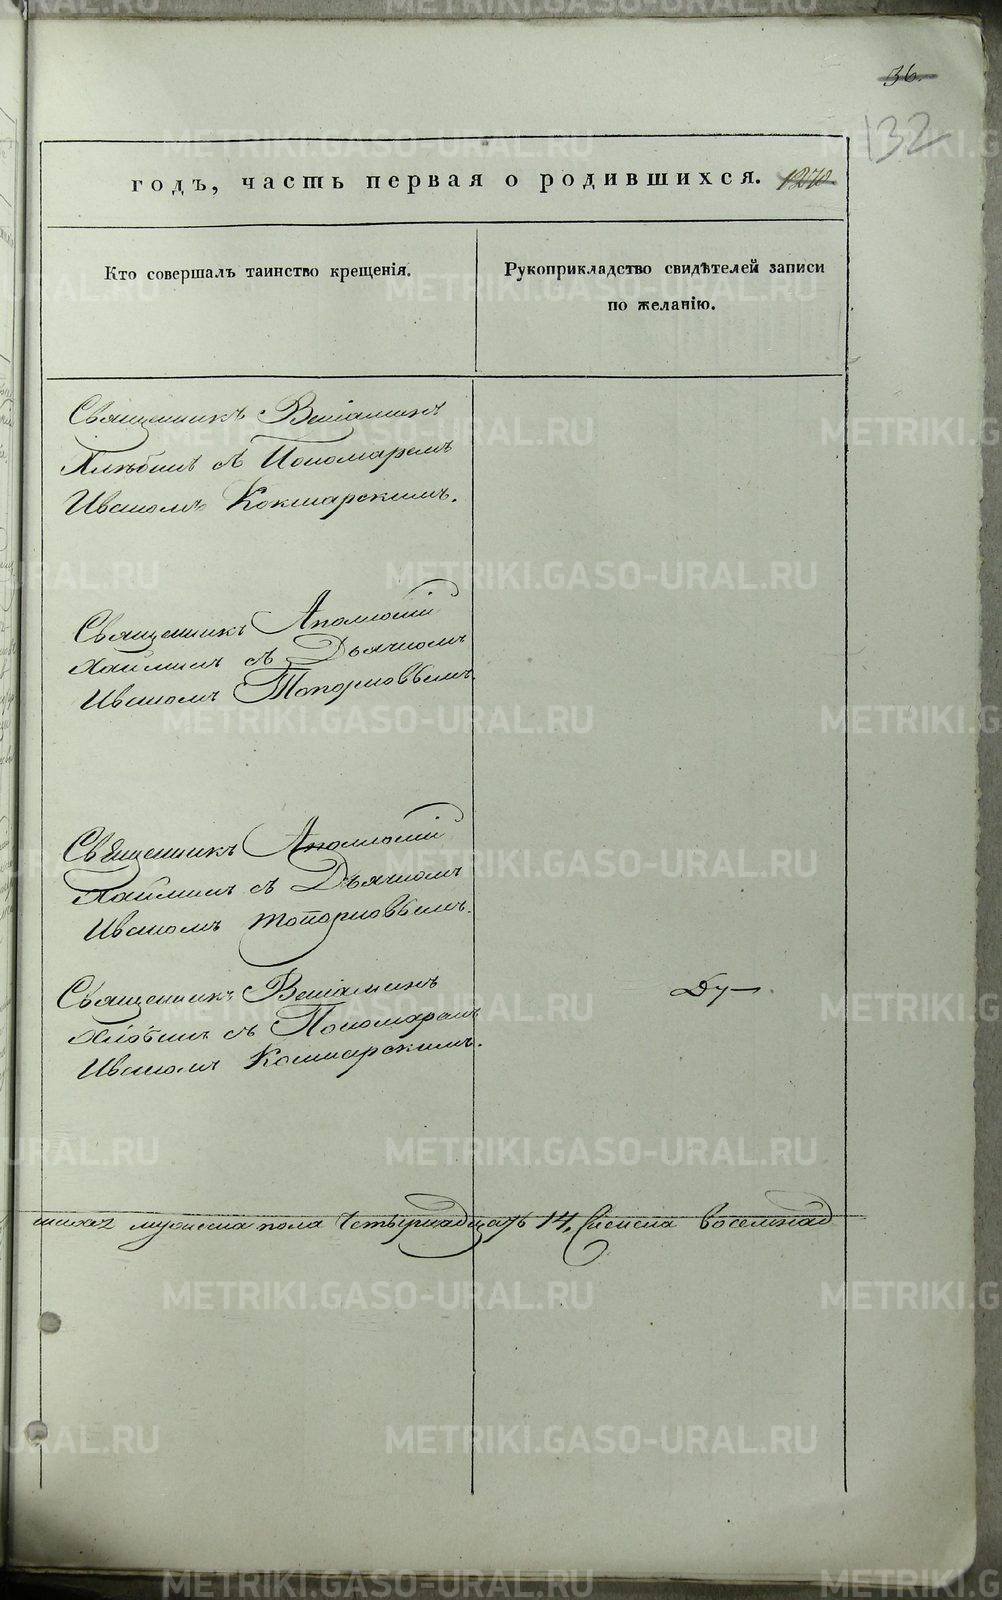 36.
132
годъ, часть первая о родившихся. 1870
Кто совершалъ таинство крещенія.
Рукоприкладство свидѣтелей записи
по желанію.
Священникъ Веніаминъ
Хлѣбинъ съ Пономаремъ
Иваномъ Кокшарскимъ.
Священникъ Аполлоній
съ Дьячкомъ
Иваномъ Топорковымъ.
Священникъ Аполлоній
съ Дьячкомъ
Иваномъ Топорковымъ.
Священникъ Веніаминъ
Хлѣбинъ съ Пономаремъ
Иваномъ Кокшарскимъ.
мужеска пола четырнадцать 14, женска восемнад
METRIKI.GASO-URAL.RU